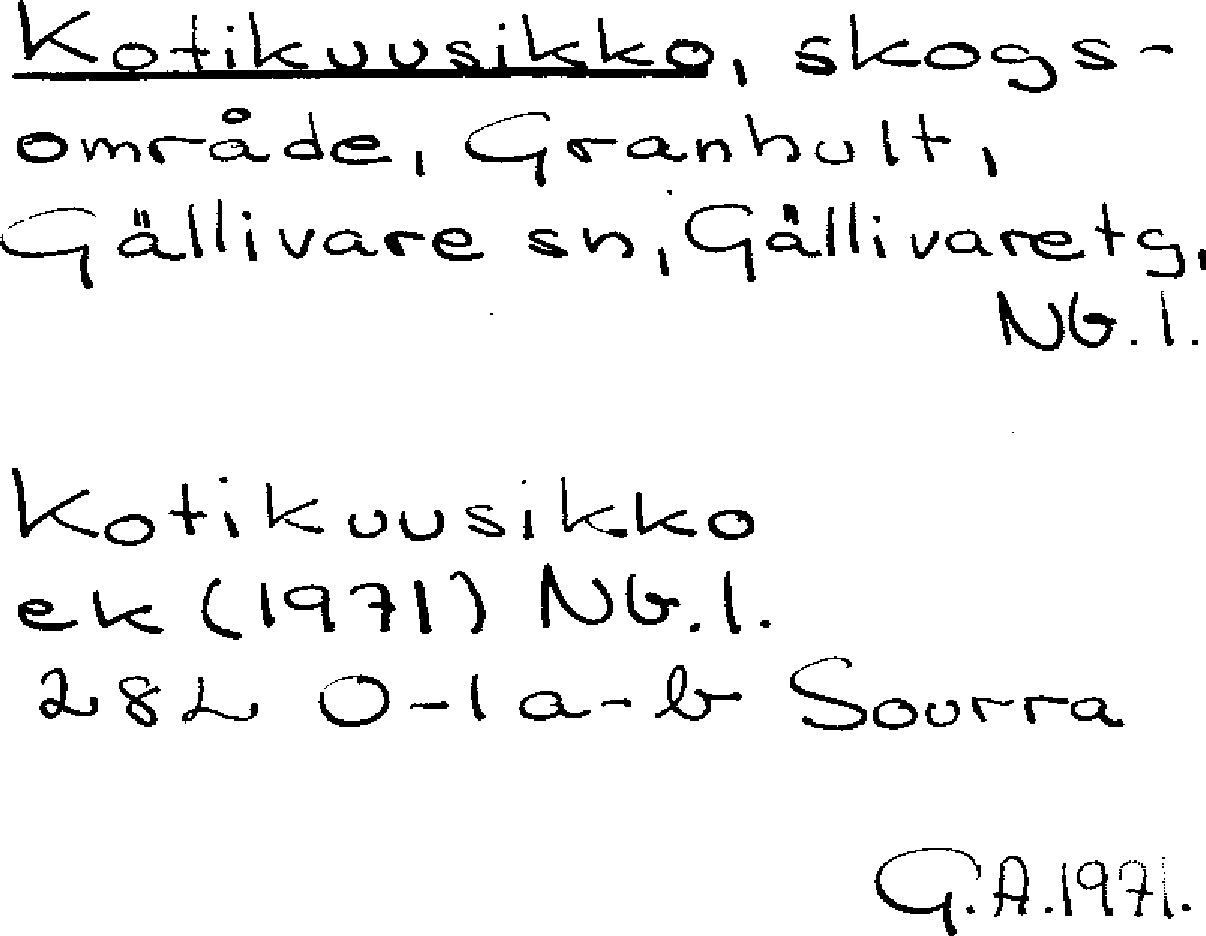 Kotikuusikko, skogs-
område, Granhult,
Gällivare sn, Gällivare tg,
Nb. l.
Kotikuusikko
ek (1971) Nb. l.
28L 0-1 a-b Sourra
G.A. 1971.